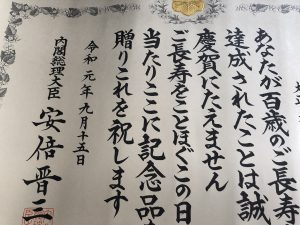 あなたが百歳のご長寿
達成されたことは誠
慶賀にたえません
ご長寿をことほぐこの日
当たりここに記念品
贈りこれを祝します
令和元年九月十五日
内閣総理大臣 安倍晋三